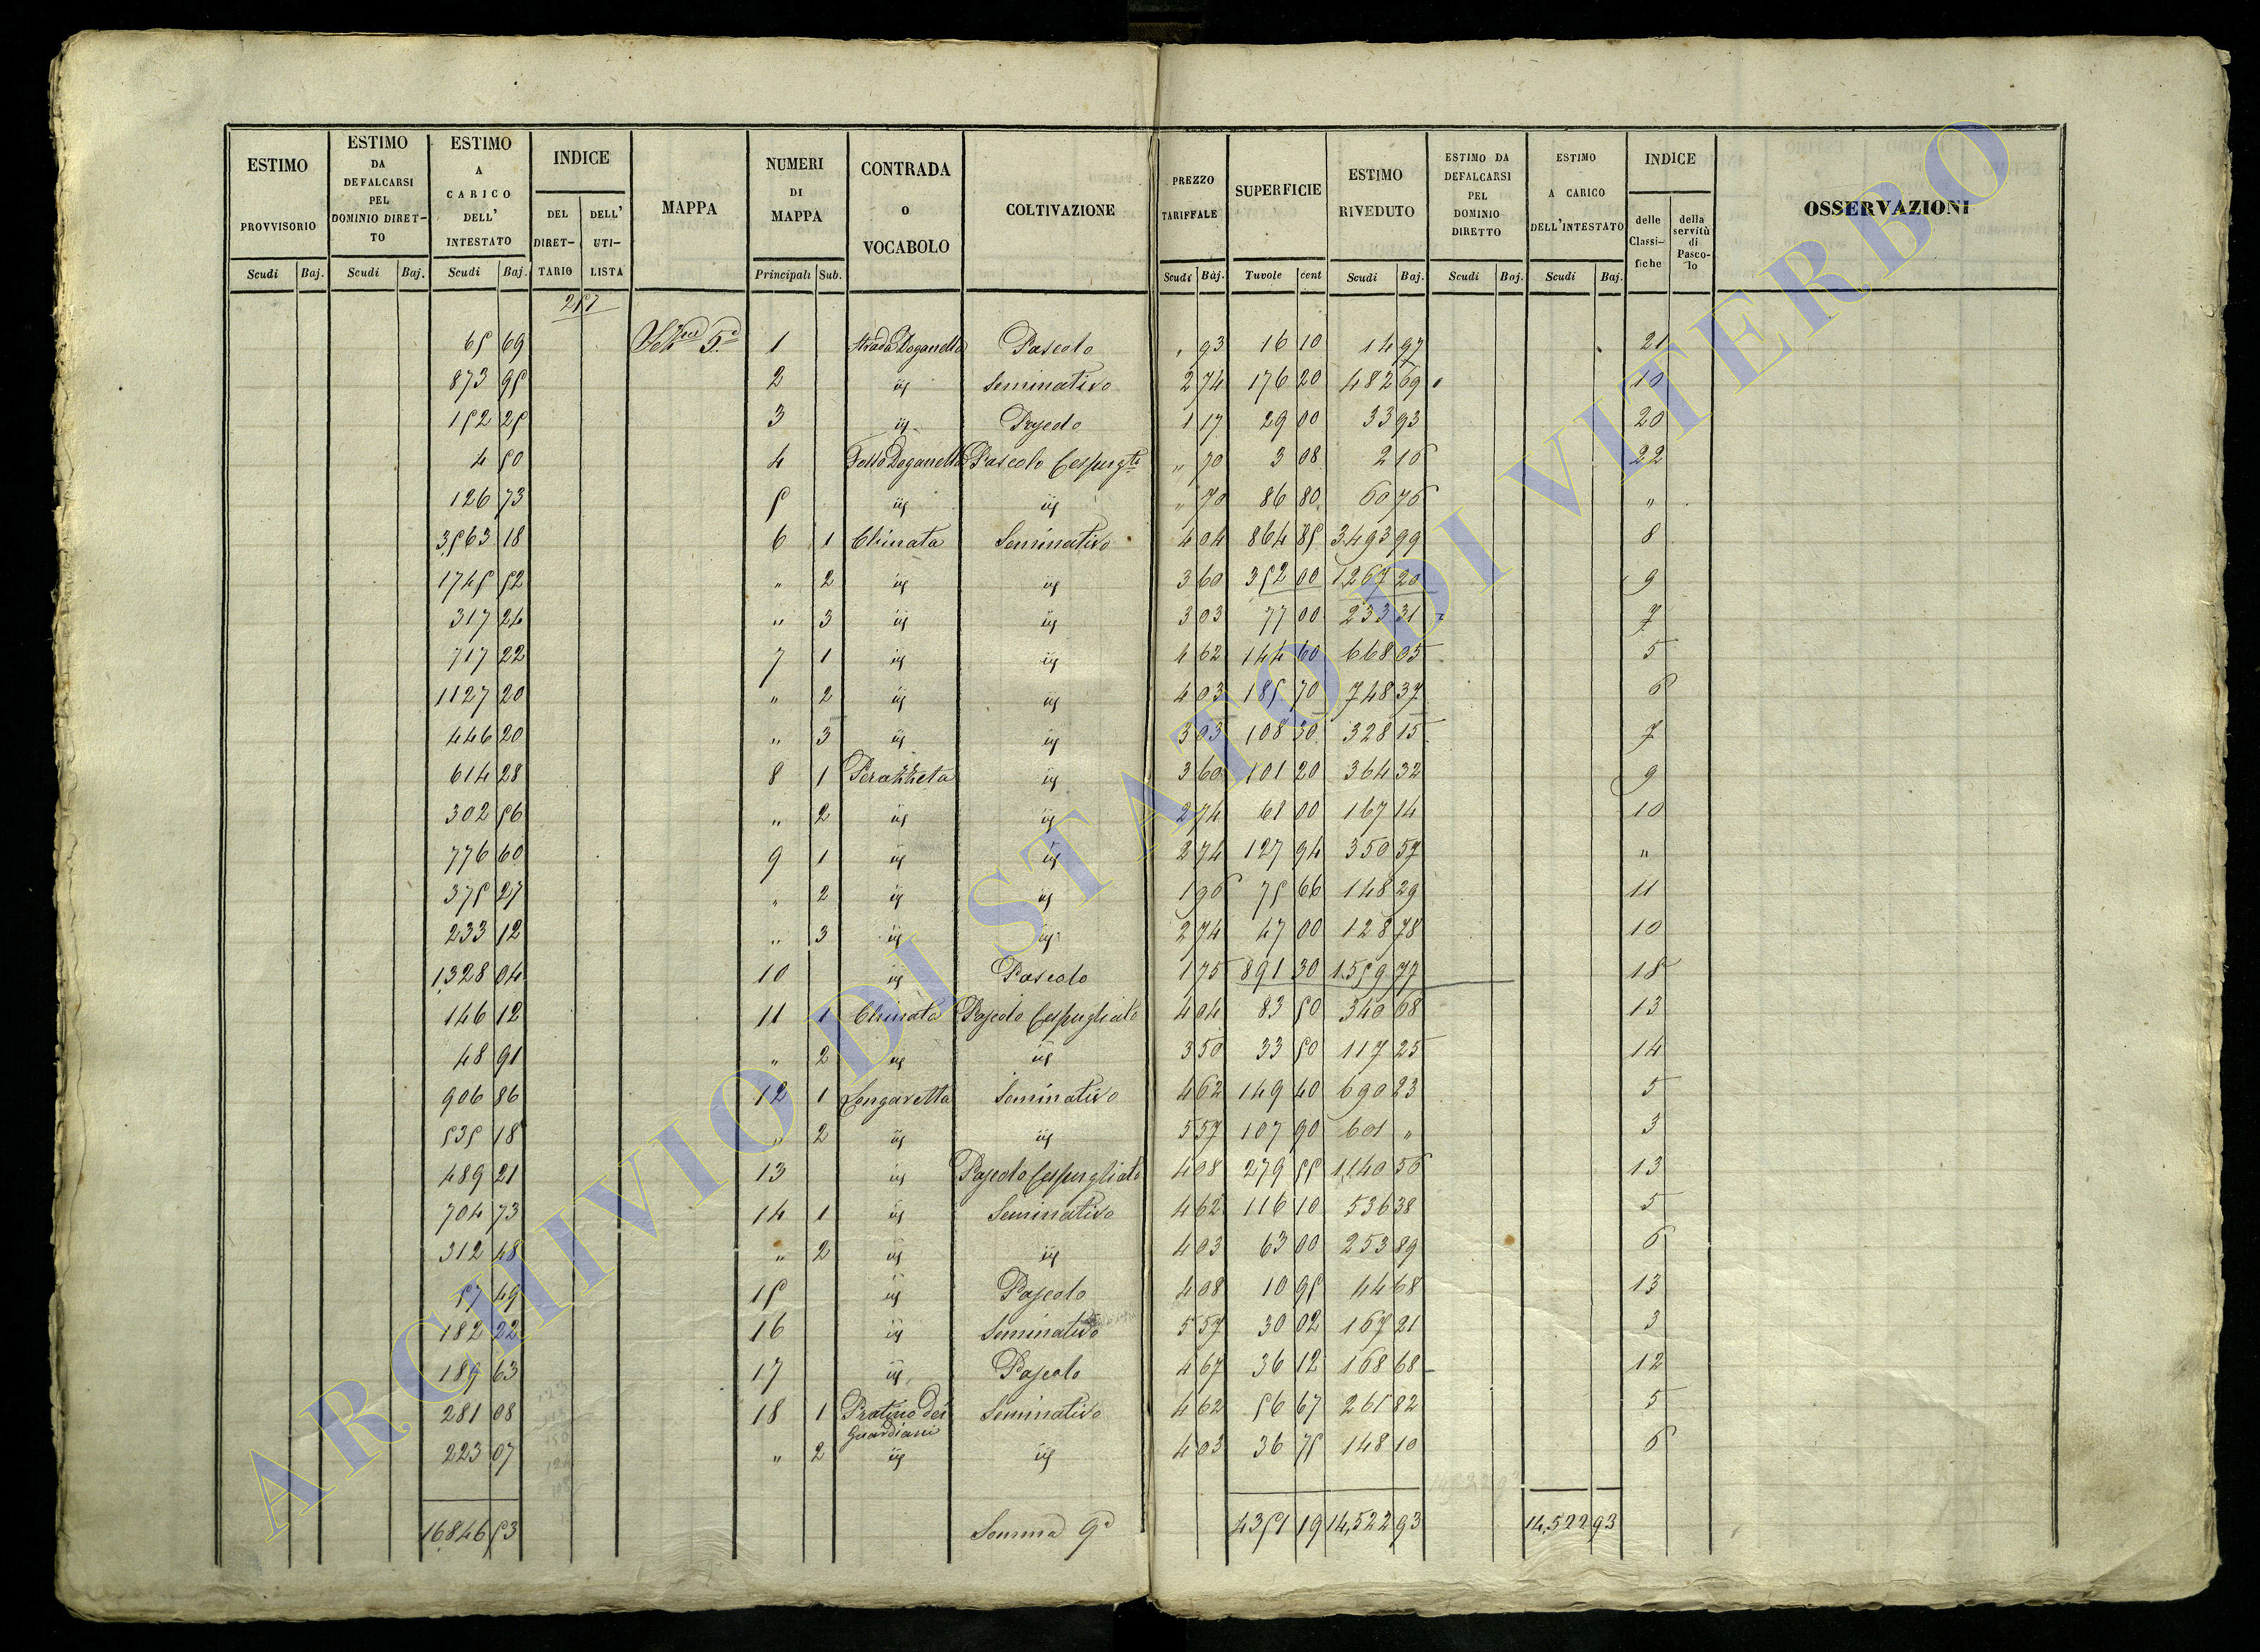 ESTIMO PROVVISORIO | ESTIMO DA DEFALCARSI PEL DOMINIO DIRETTO | ESTIMO A CARICO DELL' INTESTATO | INDICE DEL DIRETTARIO | DELL' UTILISTA | MAPPA | NUMERI DI MAPPA | CONTRADA O VOCABOLO | COLTIVAZIONE | PREZZO TARIFFALE | SUPERFICIE | ESTIMO RIVEDUTO | ESTIMO DA DEFALCARSI PEL DOMINIO DIRETTO | ESTIMO A CARICO DELL'INTESTATO | INDICE delle Classifiche | della servitù di Pascolo | OSSERVAZIONI
Scudi | Baj. | Scudi | Baj. | Scudi | Baj. | Principali | Sub. | Scudi | Baj. | Tavole | cent | Scudi | Baj. | Scudi | Baj. | Scudi | Baj.
257
65 69 | 5ª | 1 | Strada Doganella | Pascolo | " 93 | 16 10 | 14 97 | 21
873 95 | 2 | iij | Seminativo | 2 74 | 176 20 | 482 69 | 10
152 25 | 3 | iij | Pascolo | 1 17 | 29 00 | 33 93 | 20
4 50 | 4 | Fosso Doganella | Pascolo Cespugto | " 70 | 3 08 | 2 16 | 22
126 73 | 5 | iij | iij | " 70 | 86 80 | 60 76 | "
3563 18 | 6 | 1 | Chinata | Seminativo | 4 04 | 864 85 | 3493 99 | 8
1745 52 | " | 2 | iij | iij | 3 60 | 352 00 | 1267 20 | 9
317 24 | " | 3 | iij | iij | 3 03 | 77 00 | 233 31 | 7
717 22 | 7 | 1 | iij | iij | 4 62 | 144 60 | 668 05 | 5
1127 20 | " | 2 | iij | iij | 4 03 | 185 70 | 748 37 | 6
446 20 | " | 3 | iij | iij | 3 03 | 108 30 | 328 15 | 7
614 28 | 8 | 1 | Perazzeta | iij | 3 60 | 101 20 | 364 32 | 9
302 56 | " | 2 | iij | iij | 2 74 | 61 00 | 167 14 | 10
776 60 | 9 | 1 | iij | iij | 2 74 | 127 94 | 350 57 | "
375 27 | " | 2 | iij | iij | 1 96 | 75 66 | 148 29 | 11
233 12 | " | 3 | iij | iij | 2 74 | 47 00 | 128 78 | 10
1328 04 | 10 | iij | Pascolo | 1 75 | 891 30 | 1559 77 | 18
146 12 | 11 | 1 | Chinata | Pascolo Cespugliato | 4 04 | 83 50 | 340 68 | 13
48 91 | " | 2 | iij | iij | 3 50 | 33 50 | 117 25 | 14
906 86 | 12 | 1 | Longaretta | Seminativo | 4 62 | 149 40 | 690 23 | 5
535 18 | " | 2 | iij | iij | 5 57 | 107 90 | 601 " | 3
489 21 | 13 | iij | Pascolo Cespugliato | 4 08 | 279 55 | 1140 56 | 13
704 73 | 14 | 1 | iij | Seminativo | 4 62 | 116 10 | 536 38 | 5
312 48 | " | 2 | iij | iij | 4 03 | 63 00 | 253 89 | 6
57 49 | 15 | iij | Pascolo | 4 08 | 10 95 | 44 68 | 13
182 22 | 16 | iij | Seminativo | 5 57 | 30 02 | 167 21 | 3
189 63 | 17 | iij | Pascolo | 4 67 | 36 12 | 168 68 | 12
281 08 | 18 | 1 | Pratino dei Guardiani | Seminativo | 4 62 | 56 67 | 261 82 | 5
223 07 | " | 2 | iij | iij | 4 03 | 36 75 | 148 10 | 6
16846 53 | Somma | 4351 19 | 14,522 93 | 14,522 93
ARCHIVIO DI STATO DI VITERBO